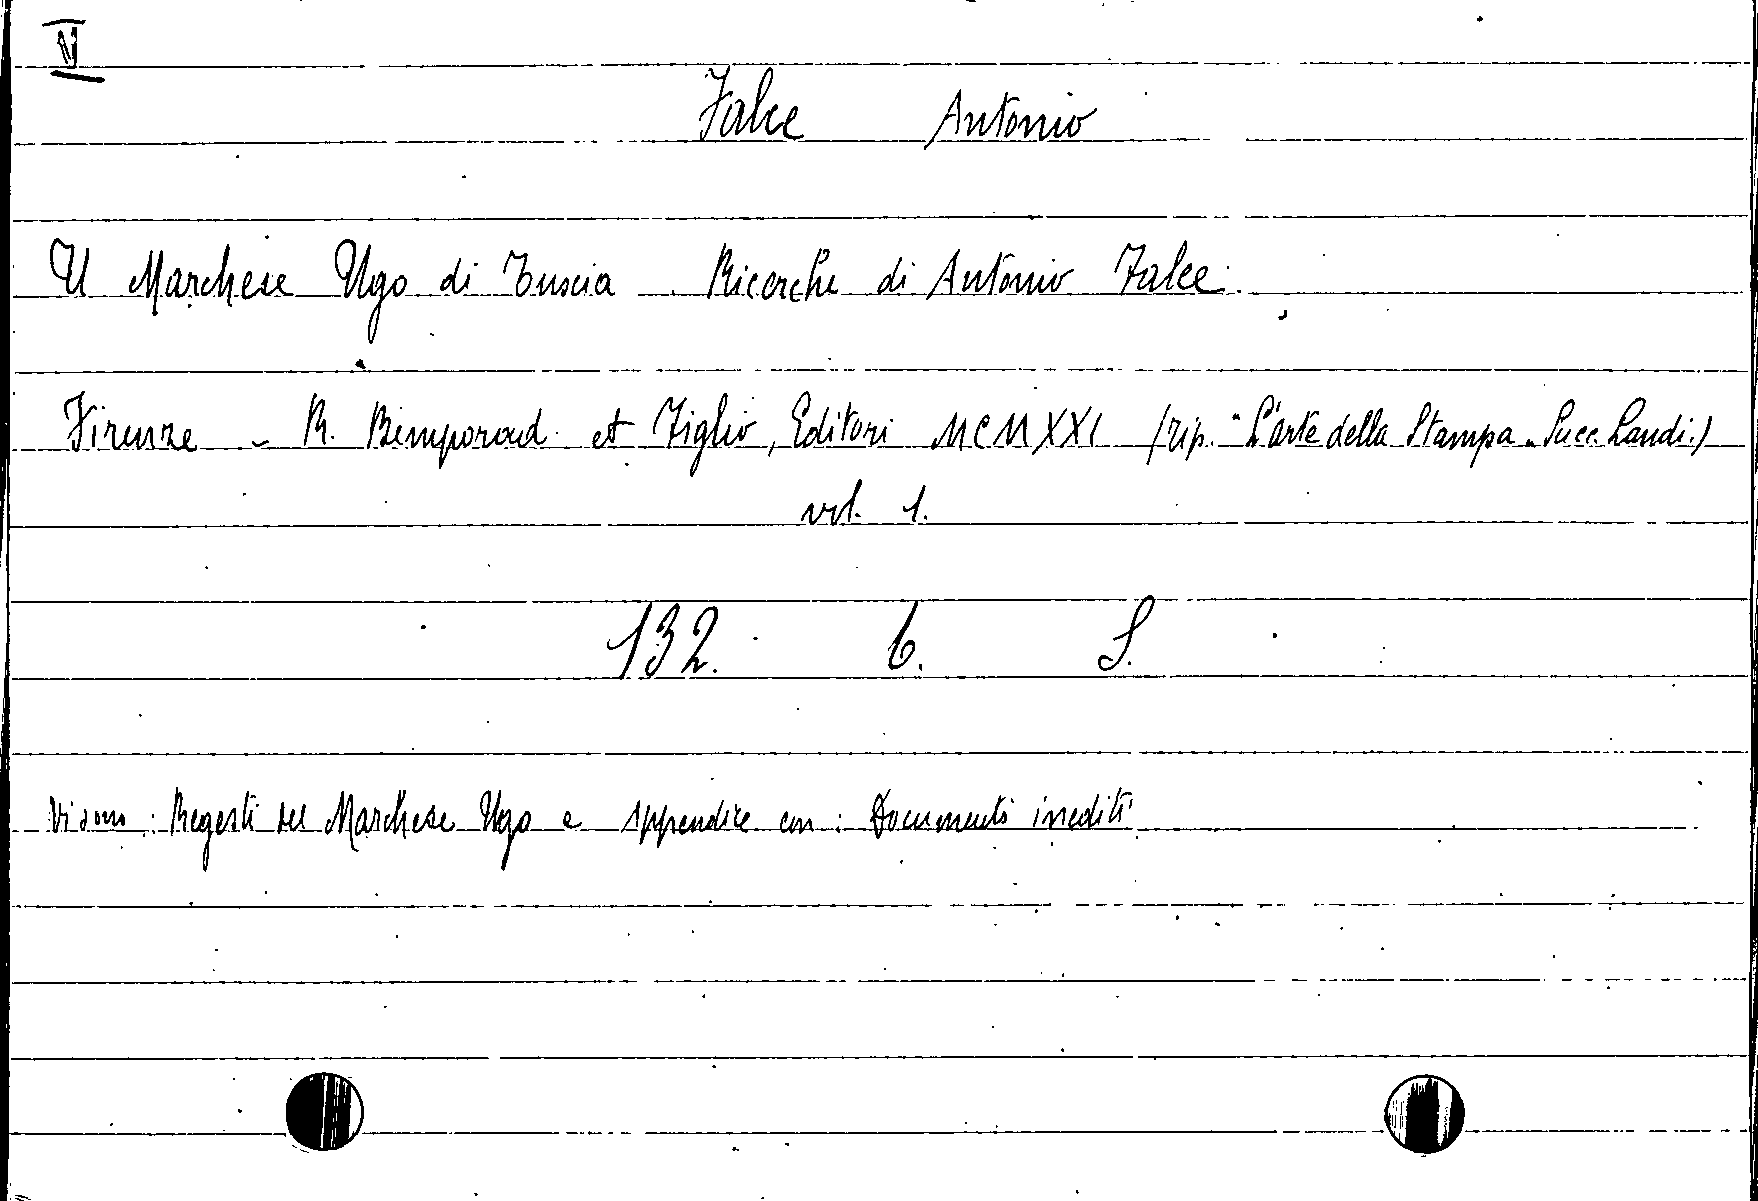 VI
Falce Antonio
Il Marchese Ugo di Tuscia . Ricerche di Antonio Falce.
Firenze - R. Bemporad et Figlio, Editori MCMXXI (tip. "L'arte della Stampa" Succ. Landi.)
vol. 1.
132. 6. S.
Vi sono : Regesti del Marchese Ugo e Appendice con : Documenti inediti